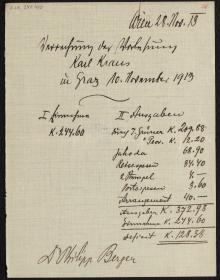 Wien 28. Nov. 13
Verrechnung der Vorlesung
Karl Kraus
in Graz 10. November 1913
I Einnahmen
K. 244.60
II Ausgaben
K 209.88
K. 12.20
68.90
Reisespesen 34.40
Stempel 4 -
Portospesen 3.60
Arrangement 40.-
Ausgaben K. 372.98
Einnahme K. 244.60
Deficit K. 128.38
Dr Philipp Berger